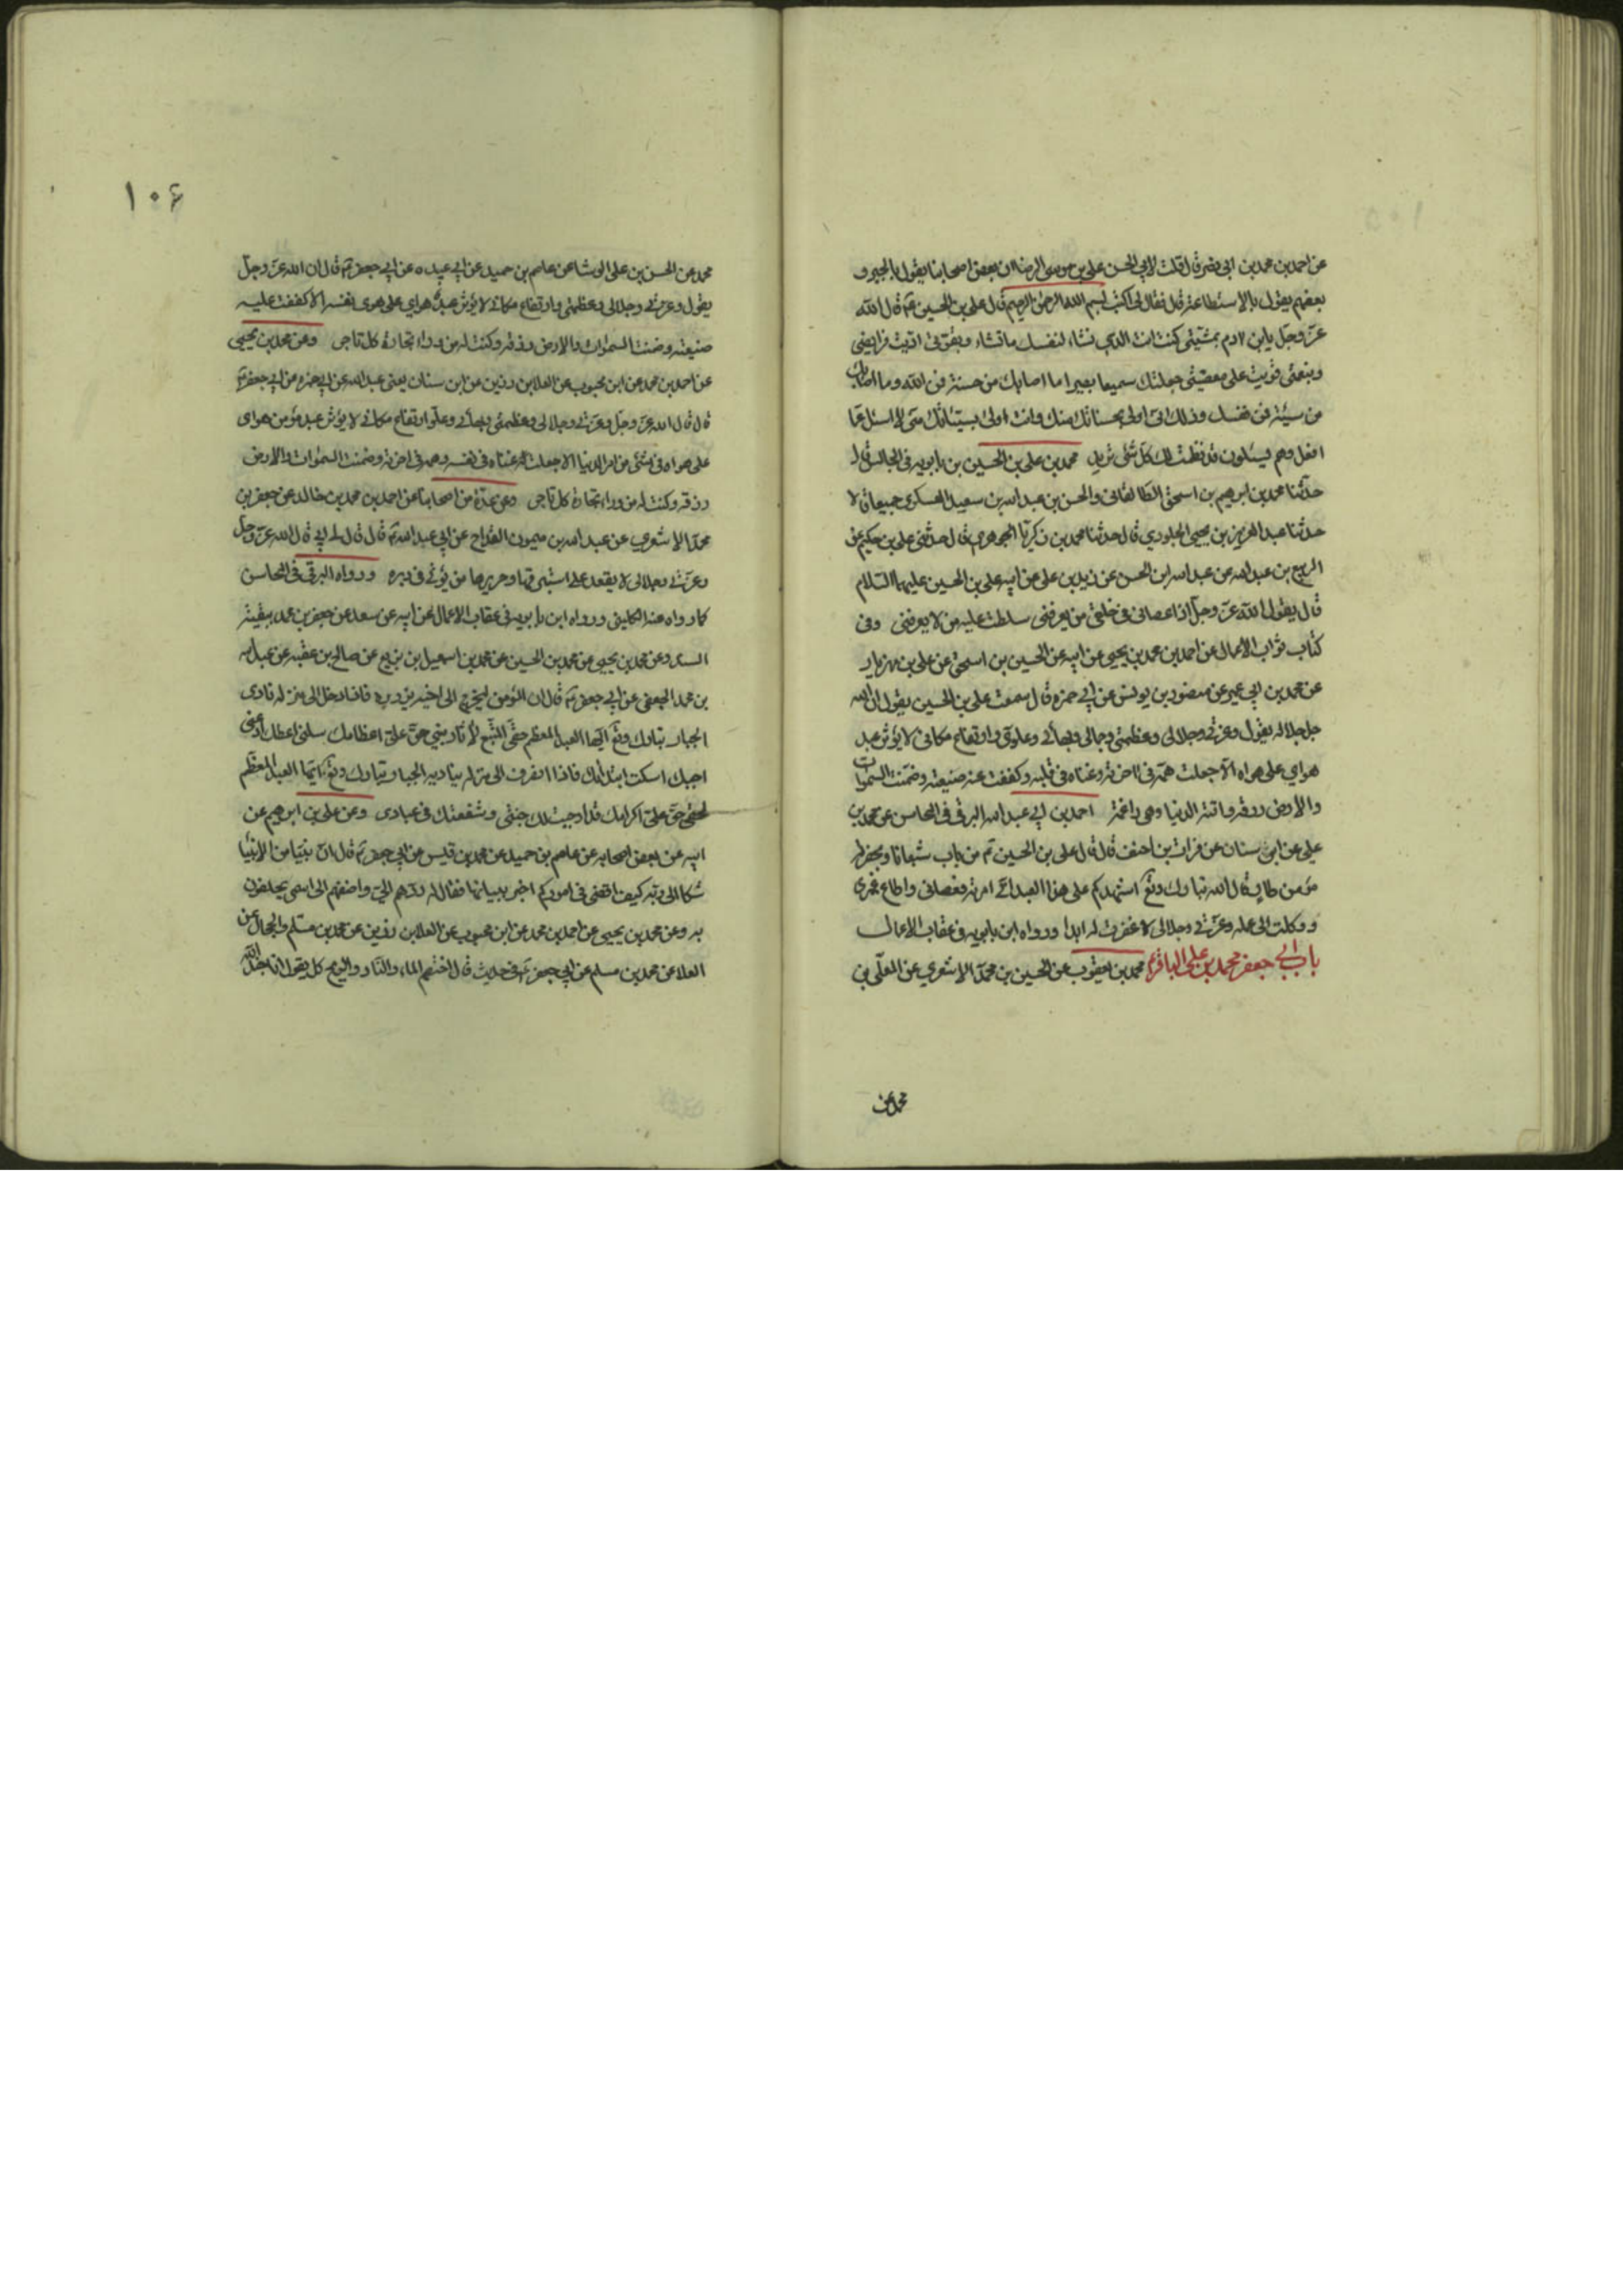 عن احمد بن محمد بن ابي نصر قال قلت لابي الحسن علي بن موسى الرضا ان بعض اصحابنا يقول بالجبر و
بعضهم يقول بالاستطاعة قال فقال لي اكتب بسم الله الرحمن الرحيم قال علي بن الحسين ع قال الله
عز وجل يابن ادم بمشيتي كنت انت الذي تشاء لنفسك ما تشاء وبقوتي اديت فرايضي
وبنعمتي قويت على معصيتي جعلتك سميعا بصيرا ما اصابك من حسنة فمن الله وما اصابك
من سيئة فمن نفسك وذلك اني اولى بحسناتك منك وانت اولى بسيئاتك مني لا اسئل عما
افعل وهم يسئلون قد نظمت لك كل شئ تريد محمد بن علي بن الحسين بن بابويه في المجالس قال
حدثنا محمد بن ابرهيم بن اسحق الطالقاني والحسن بن عبد الله بن سعيد العسكري جميعا قالا
حدثنا عبد العزيز بن يحيى الجلودي قال حدثنا محمد بن زكريا الجوهري قال حدثني علي بن حكيم عن
الربيع بن عبد الله عن عبد الله ابن الحسن عن زيد بن علي عن ابيه علي بن الحسين عليهما السلام
قال يقول الله عز وجل اذا عصاني من خلقي من يعرفني سلطت عليه من لا يعرفني وفي
كتاب ثواب الاعمال عن احمد بن محمد بن يحيى عن ابيه عن الحسين بن اسحق عن علي بن مهزيار
عن محمد بن ابي عمير عن منصور بن يونس عن ابي حمزه قال سمعت علي بن الحسين يقول ان الله
جل جلاله يقول وعزتي وجلالي وعظمتي وجمالي وبهائي وعلوي وارتفاع مكاني لا يؤثر عبد
هواي على هواه الا جعلت همه في اخرته وغناه في قلبه وكففت عنه ضيعته وضمنت السموات
والارض رزقه واتته الدنيا وهي راغمة احمد بن ابي عبد الله البرقي في المحاسن عن محمد بن
علي عن ابن سنان عن فرات بن احنف قال قال علي بن الحسين ع من بات شبعانا وبحضرته
مؤمن طاو قال الله تبارك وتع اشهدكم على هذا العبد اني امرته فعصاني واطاع غيري
ووكلته الى عمله وعزتي وجلالي لا غفرت له ابدا ورواه ابن بابويه في عقاب الاعمال
باب ابي جعفر محمد بن علي الباقر ع محمد بن يعقوب عن الحسين بن محمد الاشعري عن المعلى بن
محمد عن
١٠۶
محمد عن الحسن بن علي الوشا عن عاصم بن حميد عن ابي عبيده عن ابي جعفر ع قال ان الله عز وجل
يقول وعزتي وجلالي وعظمتي وارتفاع مكاني لا يؤثر عبد هواي على هوى نفسه الا كففت عليه
ضيعته وضمنت السموات والارض رزقه وكنت له من وراء تجارة كل تاجر وعن محمد بن يحيى
عن احمد بن محمد عن ابن محبوب عن العلا بن رزين عن ابن سنان يعني عبد الله عن ابي حمزه عن ابي جعفر ع
قال قال الله عز وجل وعزتي وجلالي وعظمتي وبهائي وعلو ارتفاع مكاني لا يؤثر عبد مؤمن هواي
على هواه في شئ من امر الدنيا الا جعلت غناه في نفسه وهمه في اخرته وضمنت السموات والارض
رزقه وكنت له من وراء تجارة كل تاجر وعن عدة من اصحابنا عن احمد بن محمد بن خالد عن جعفر بن
محمد الاشعري عن عبد الله بن ميمون القداح عن ابي عبد الله ع قال قال لي ابي قال الله عز وجل
وعزتي وجلالي لا يقعد على استبرقها وحريرها من يؤتى في دبره ورواه البرقي في المحاسن
كما رواه عنه الكليني ورواه ابن بابويه في عقاب الاعمال عن ابيه عن سعد عن جعفر بن محمد ببقية
السند وعن محمد بن يحيى عن محمد بن الحسين عن محمد بن اسمعيل بن بزيع عن صالح بن عقبه عن عبد الله
بن محمد الجعفي عن ابي جعفر ع قال ان المؤمن ليخرج الى اخيه يزوره فاذا دخل الى منزله نادى
الجبار تبارك وتع ايها العبد المعظم حقي المتبع لآثار نبيي حق علي اعظامك سلني اعطك ادعني
اجبك اسكت ابتدئك فاذا انصرف الى منزله يناديه الجبار تبارك وتع ايها العبد المعظم
لحقي حق علي اكرامك قد اوجبت لك جنتي وشفعتك في عبادي وعن علي بن ابرهيم عن
ابيه عن بعض اصحابه عن عاصم بن حميد عن محمد بن قيس عن ابي جعفر ع قال ان نبيا من الانبيا
شكا الى ربه كيف اقضي في امور لم اخبر ببيانها فقال له ردهم الي واضفهم الى اسمي يحلفون
به وعن محمد بن يحيى عن احمد بن محمد عن ابن محبوب عن العلا بن رزين عن محمد بن مسلم والحجال عن
العلا عن محمد بن مسلم عن ابي جعفر ع في حديث قال اختصم الماء والنار والريح كل يقول انا جند الله